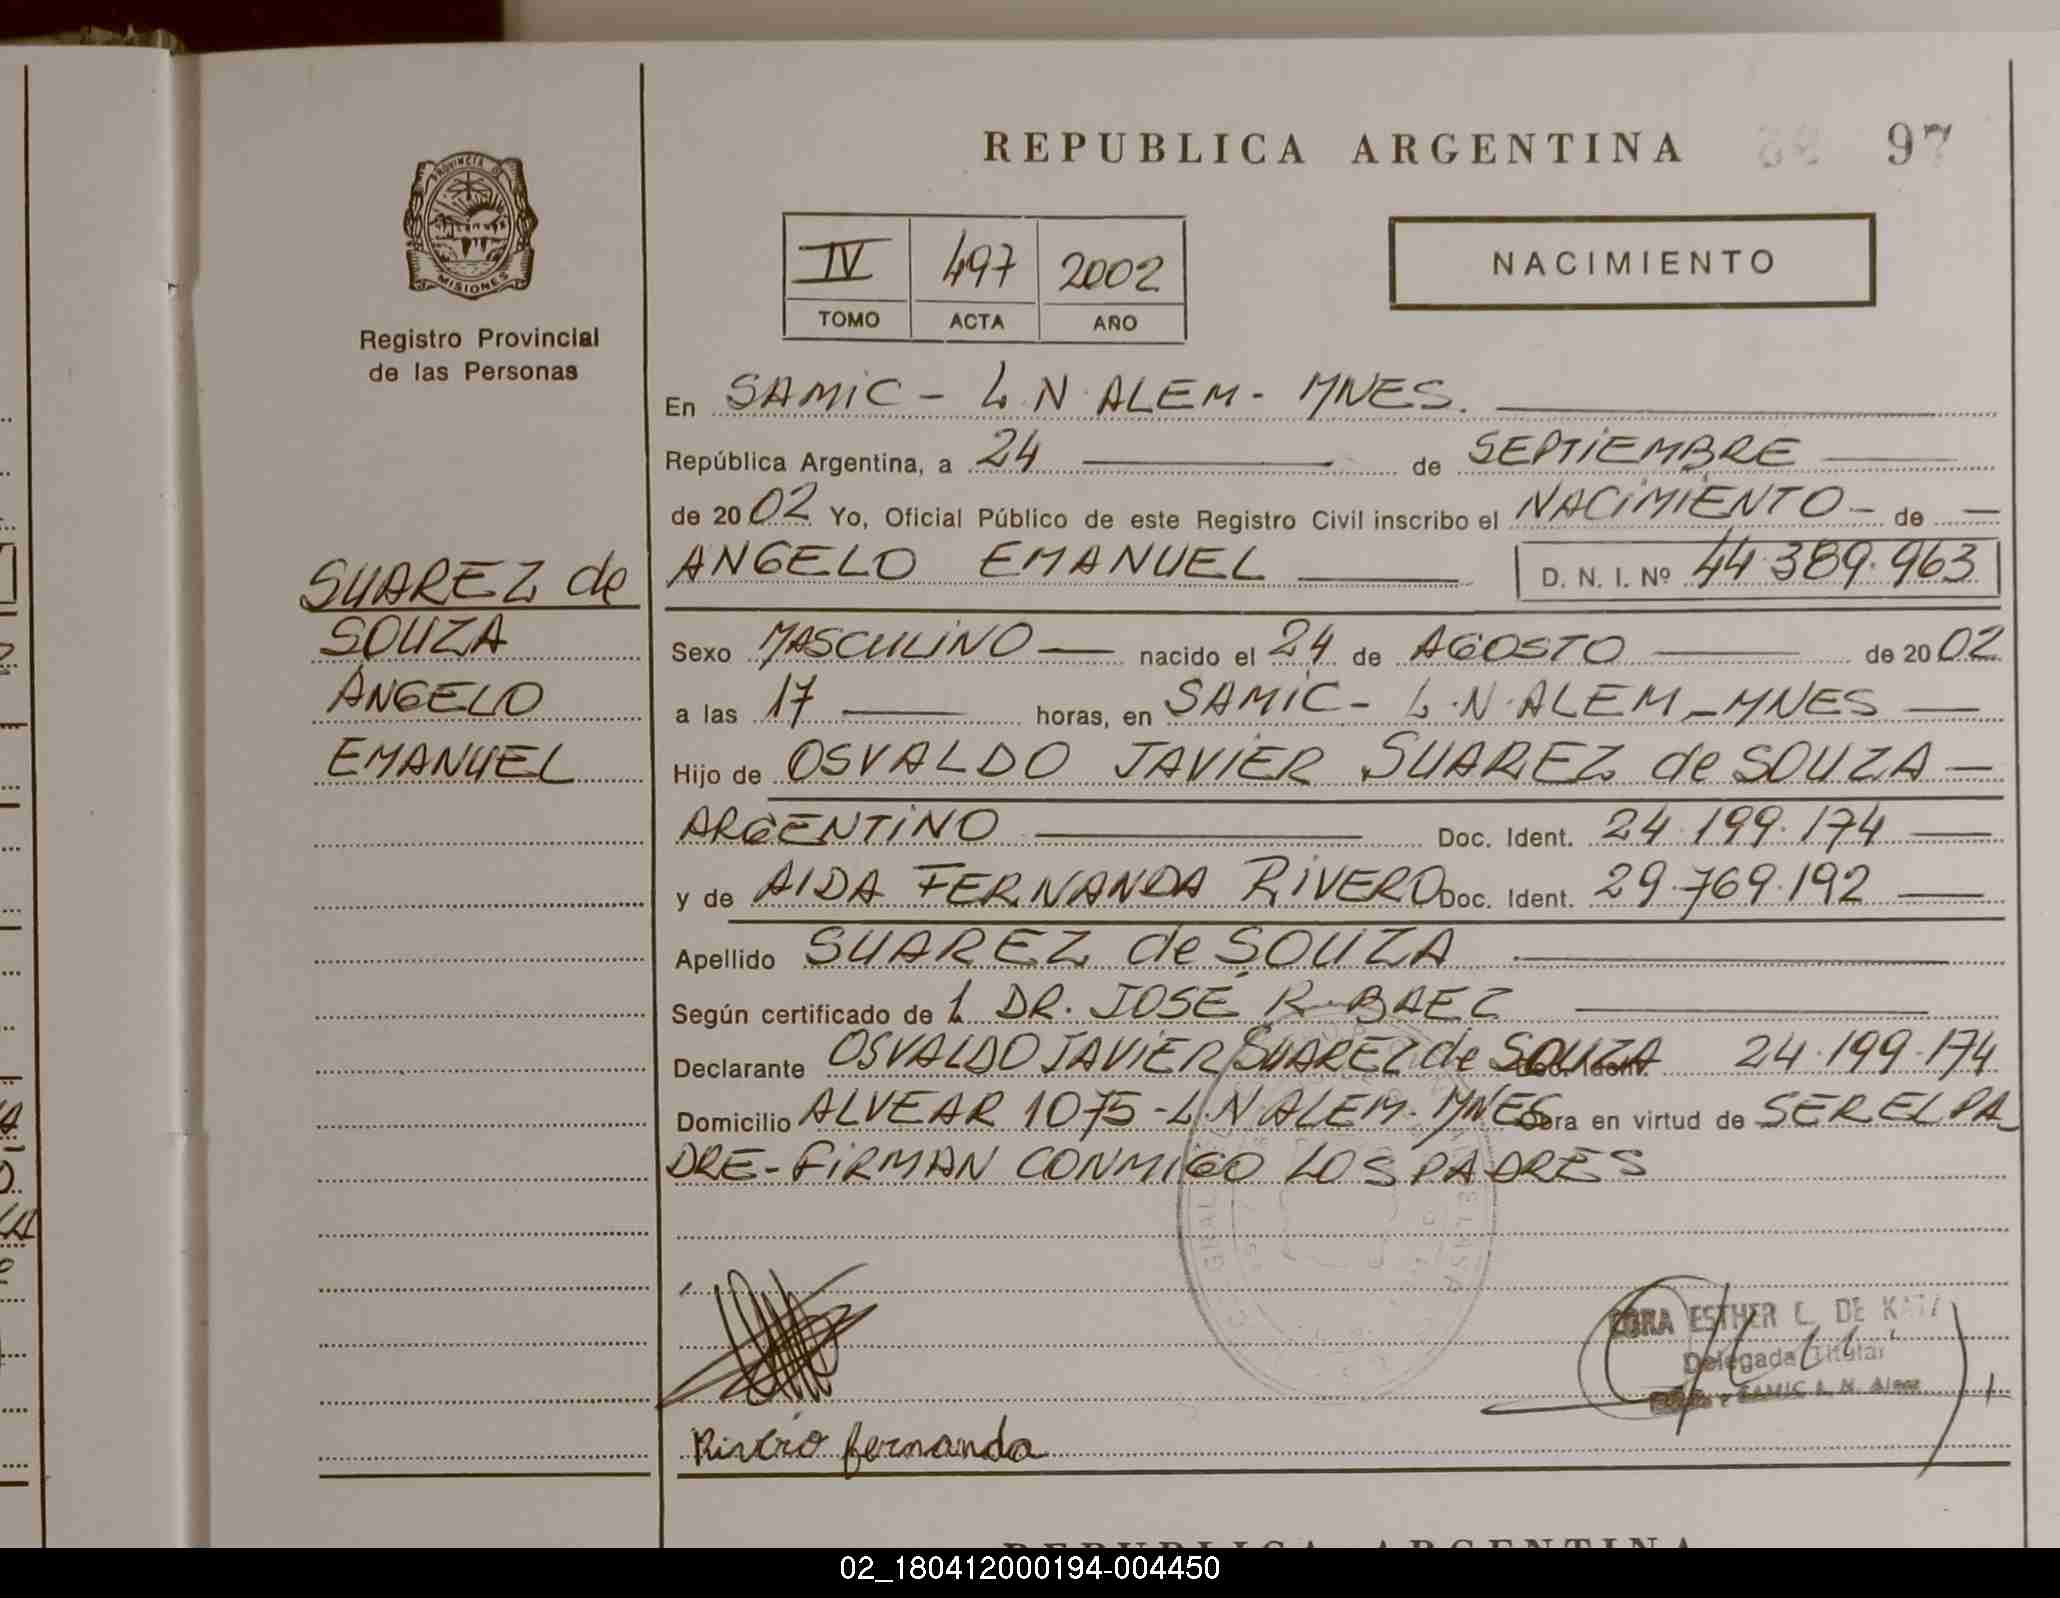 REPUBLICA ARGENTINA 97
PROVINCIA DE
MISIONES
Registro Provincial
de las Personas
IV 497 2002
TOMO ACTA AÑO
NACIMIENTO
En SAMIC - L.N. ALEM - MNES.
República Argentina, a 24 de SEPTIEMBRE
de 2002 Yo, Oficial Público de este Registro Civil inscribo el NACIMIENTO - de
ANGELO EMANUEL D. N. I. Nº 44.389.963
SUAREZ de
SOUZA
ANGELO
EMANUEL
Sexo MASCULINO nacido el 24 de AGOSTO de 2002
a las 17 horas, en SAMIC - L.N. ALEM - MNES
Hijo de OSVALDO JAVIER SUAREZ de SOUZA
ARGENTINO Doc. Ident. 24.199.174
y de AIDA FERNANDA RIVERO Doc. Ident. 29.769.192
Apellido SUAREZ de SOUZA
Según certificado de 1 DR. JOSÉ R. BAEZ
Declarante OSVALDO JAVIER SUAREZ de SOUZA Doc. Ident. 24.199.174
Domicilio ALVEAR 1075 - L.N ALEM - MNES Obra en virtud de SER EL PA_
DRE - FIRMAN CONMIGO LOS PADRES
ESTHER C. DE KATZ
Delegada Titular
SAMIC L. N. Alem
Rivero fernanda
REPUBLICA ARGENTINA
02_180412000194-004450